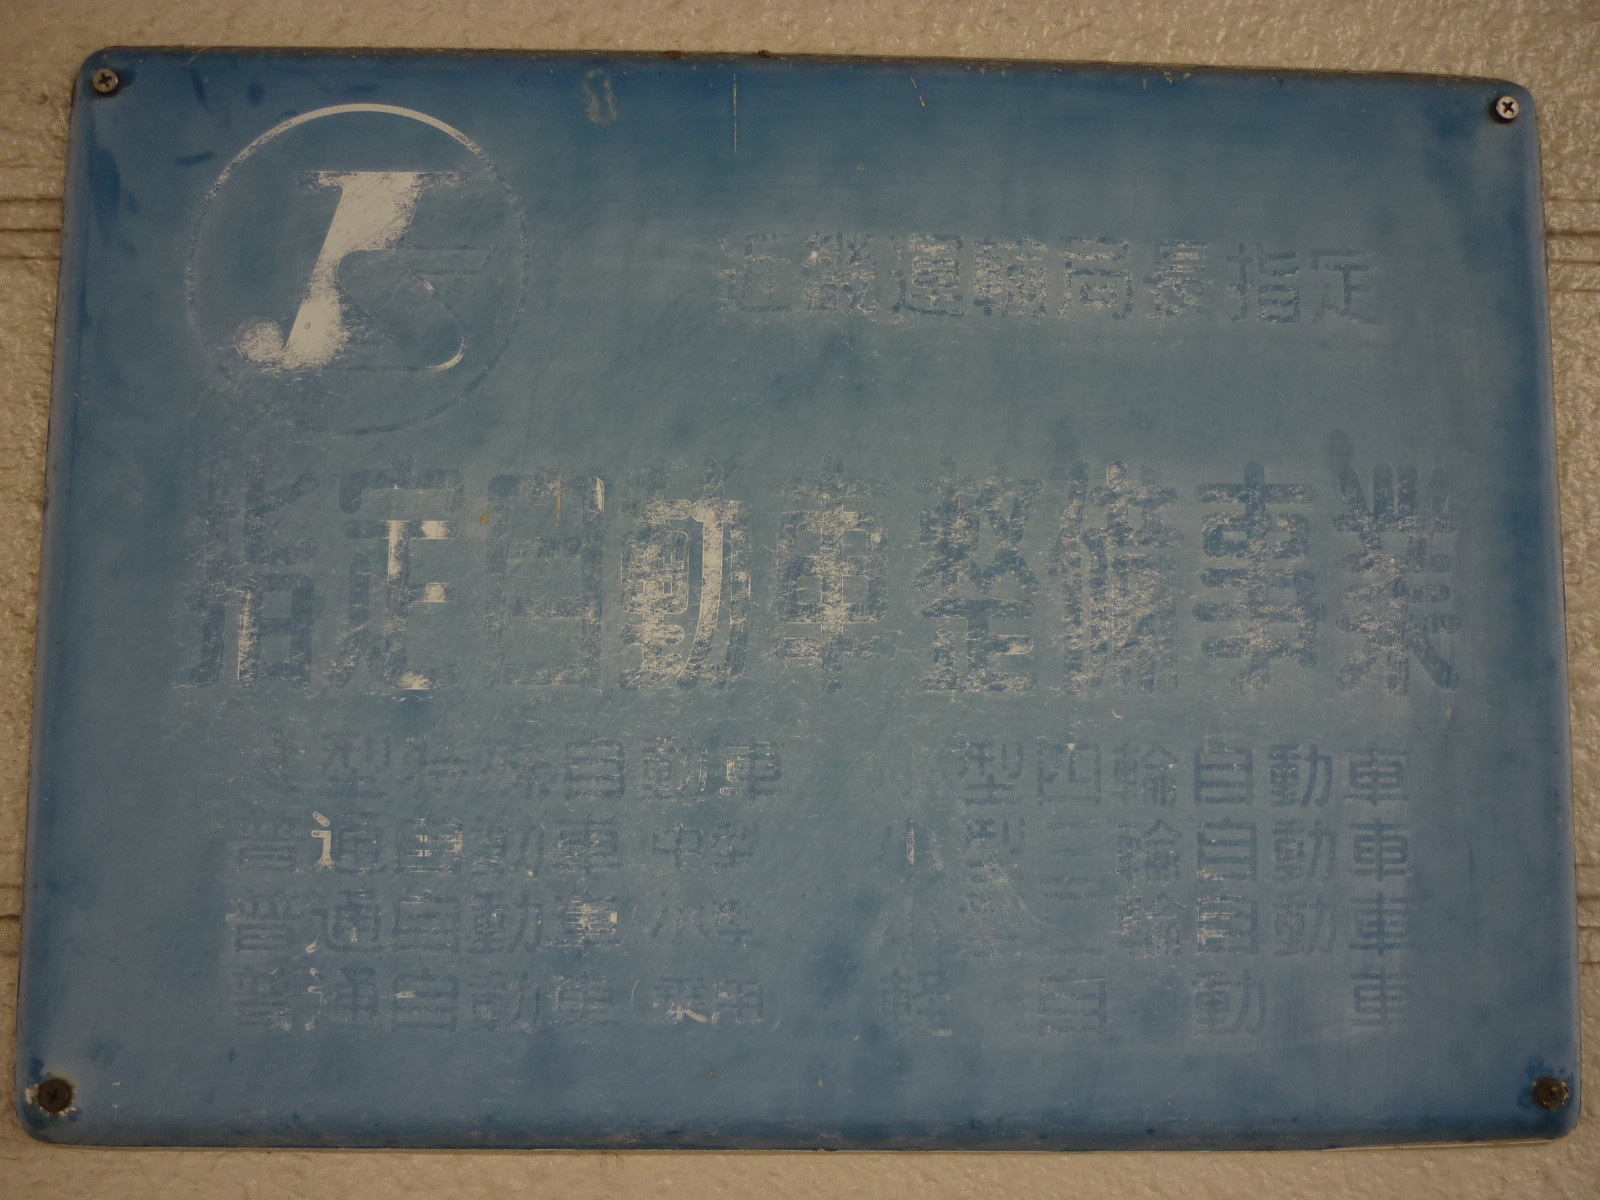 近畿運輸局長指定
指定自動車整備事業
大型特殊自動車
普通自動車(中型
普通自動車(小型
普通自動車(乗用
小型四輪自動車
小型三輪自動車
小型二輪自動車
軽自動車